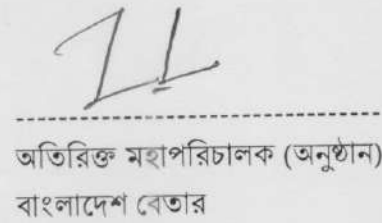 অতিরিক্ত মহাপরিচালক (অনুষ্ঠান)
বাংলাদেশ বেতার